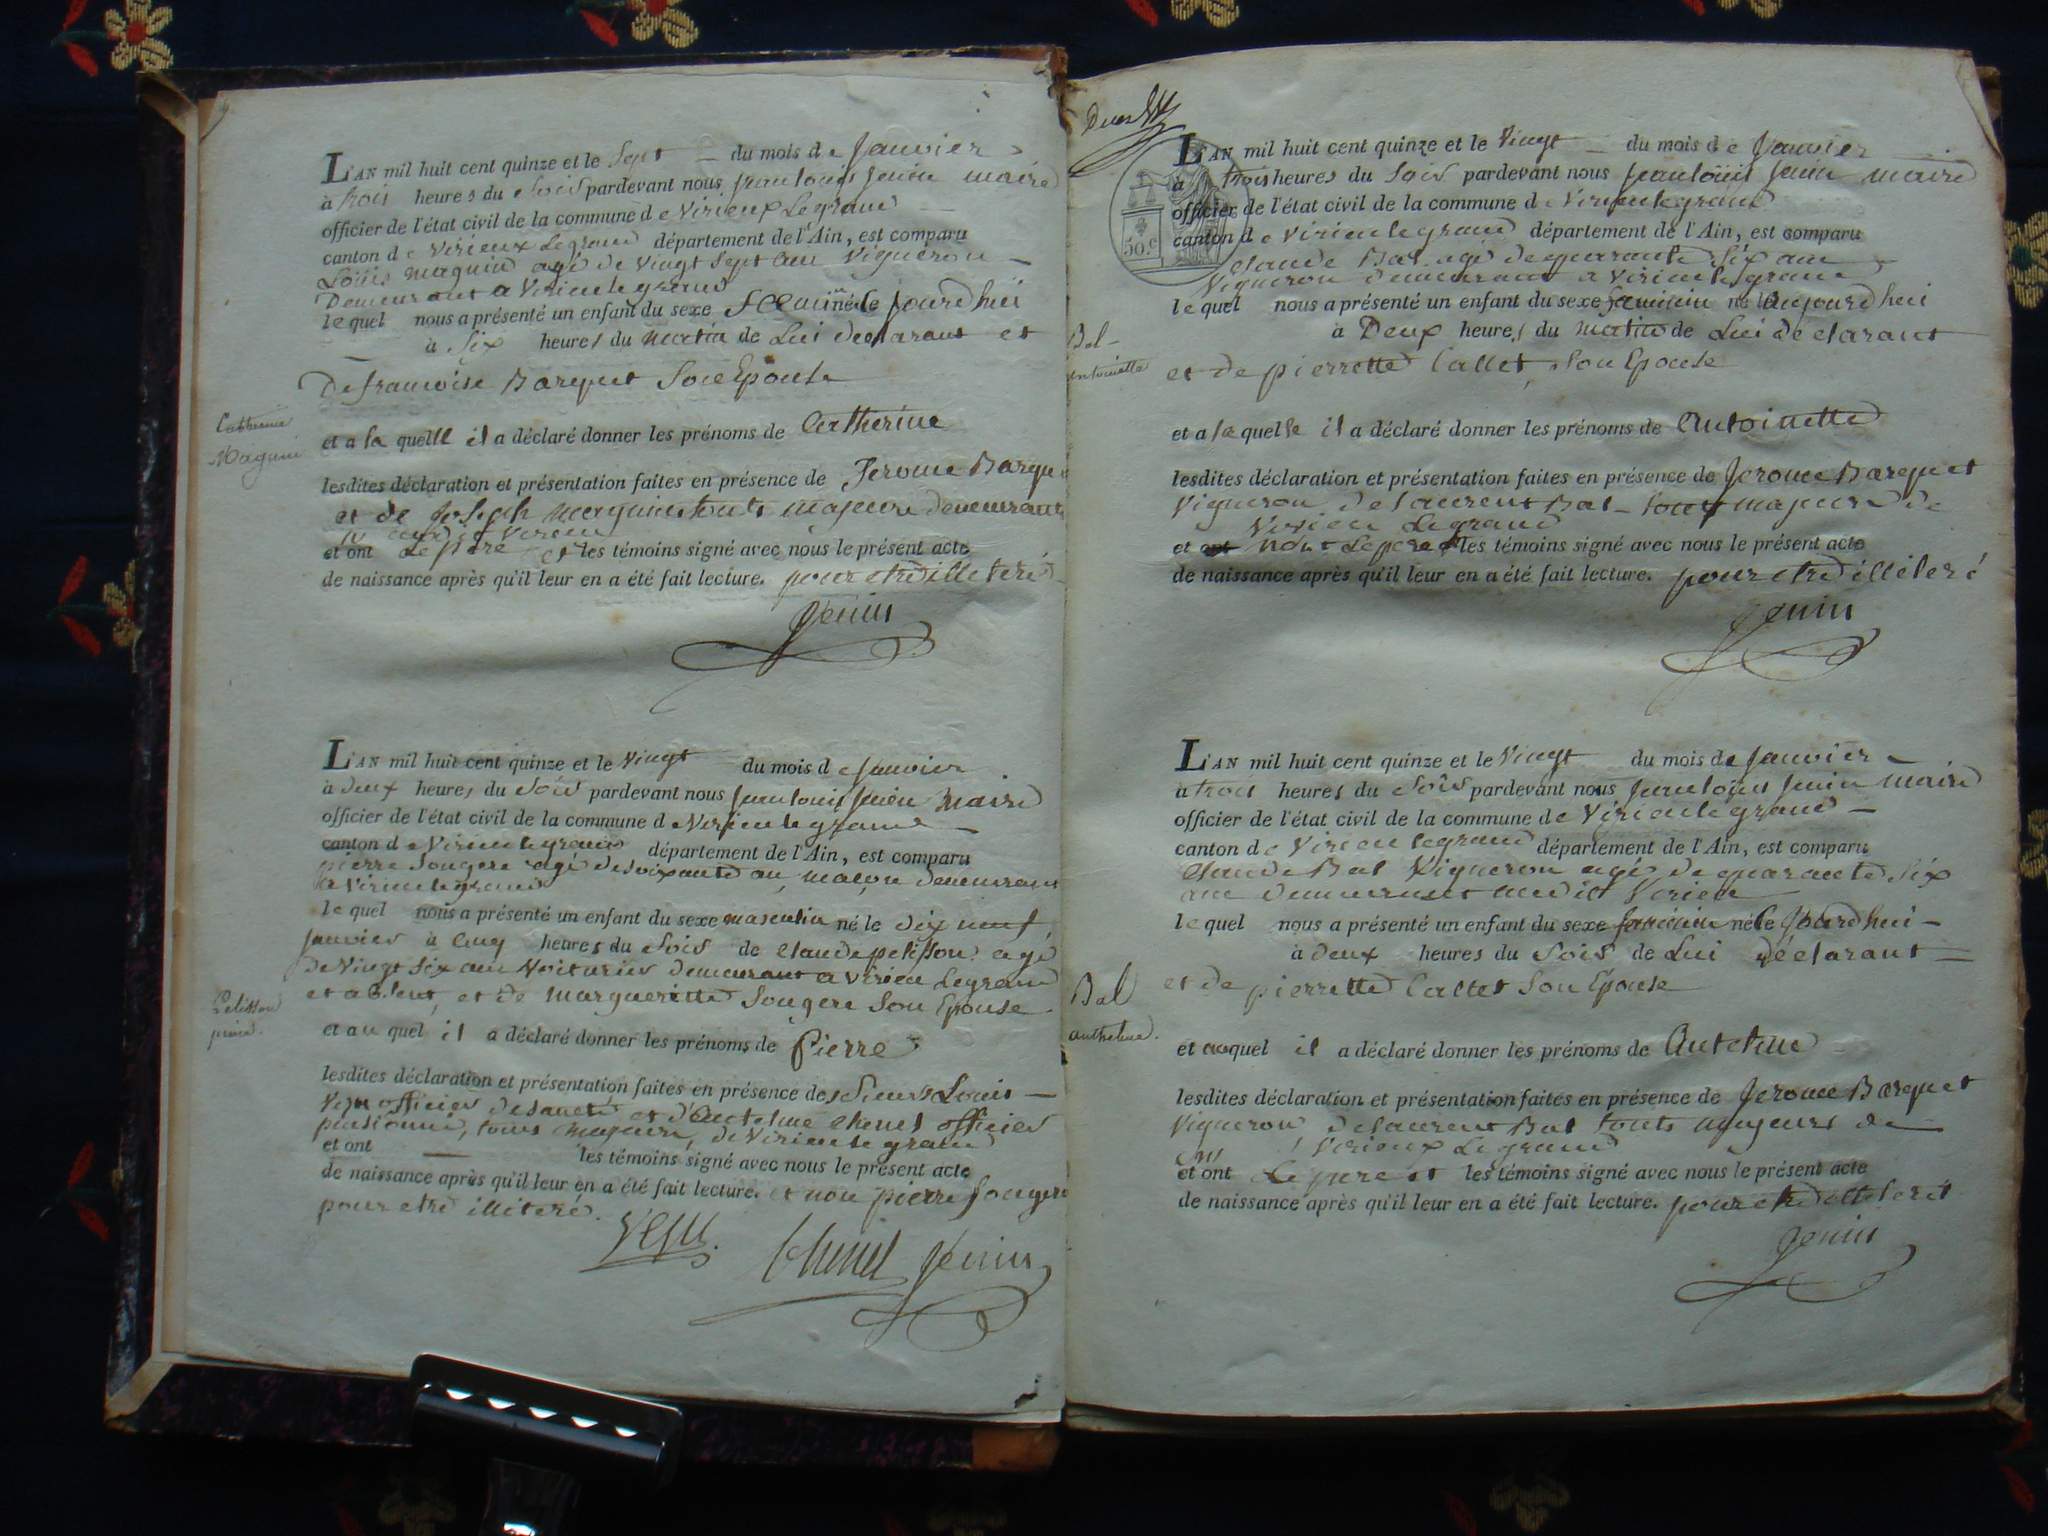 L'AN mil huit cent quinze et le Sept du mois de Janvier
à trois heures du Soir pardevant nous jean louis jenin maire
officier de l'état civil de la commune de Virieux Le grand
canton de Virieux Le grand département de l'Ain, est comparu
Loüis maquin agé de Vingt Sept ans Vigneron
Demeurant a Virieu le grand
le quel nous a présenté un enfant du sexe né le jourdhui
à Six heures du matin de Lui declarant et
De francoise Barquet Son Epouse
Catherine
Maquin
et a la quelle il a déclaré donner les prénoms de Catherine
lesdites déclaration et présentation faites en présence de Jerome Barquet
et de joseph maquin touts majeurs demeurants
et ont Le pere et les témoins signé avec nous le présent acte
de naissance après qu'il leur en a été fait lecture. pour etre illeteré
Jenin
L'AN mil huit cent quinze et le Vingt du mois de Janvier
à deux heures du Soir pardevant nous jean louis jenin maire
officier de l'état civil de la commune de Virieu le grand
canton de Virieu le grand département de l'Ain, est comparu
pierre Sougere agé de soixante an, maçon demeurant
a Virieu le grand
le quel nous a présenté un enfant du sexe masculin né le dix neuf
janvier à cinq heures du Soir de Claude pelisson agé
de Vingt Six ans Voiturier demeurant a Virieu Le grand
et absent, et de margueritte Sougere Son Epouse
Pelisson
pierre.
et au quel il a déclaré donner les prénoms de Pierre
lesdites déclaration et présentation faites en présence des Sieurs Louis
officier de santé et d'Antelme Chenel officier
pensionné, tous majeurs, de Virieu le grand
et ont les témoins signé avec nous le présent acte
de naissance après qu'il leur en a été fait lecture. et non pierre Sougere
pour etre illiteré.
Chenel Jenin
L'AN mil huit cent quinze et le Vingt du mois de Janvier
à trois heures du Soir pardevant nous jean loüis jenin maire
officier de l'état civil de la commune de Virieu le grand
50.c
canton de Virieu le grand département de l'Ain, est comparu
Claude Bal agé de quarante Six ans
Vigneron demeurant a Virieu le grand
le quel nous a présenté un enfant du sexe feminin né le aujourd hui
à Deux heures du matin de Lui déclarant
Bal
antoinette
et de pierrette Callet, Son Epouse
et a la quelle il a déclaré donner les prénoms de Antoinette
lesdites déclaration et présentation faites en présence de Jerome Barquet
Vigneron de laurent Bal touts majeurs de
Virieu Le grand
et ont non Le pere et les témoins signé avec nous le présent acte
de naissance après qu'il leur en a été fait lecture. pour etre illéteré
Jenin
L'AN mil huit cent quinze et le Vingt du mois de Janvier
à trois heures du Soir pardevant nous jean loüis jenin maire
officier de l'état civil de la commune de Virieu le grand
canton de Virieu le grand département de l'Ain, est comparu
Claude Bal Vigneron agé de quarante Six
ans demeurant audit Virieu
le quel nous a présenté un enfant du sexe feminin né le jourd hui
à deux heures du Soir de Lui déclarant
Bal
anthelme.
et de pierrette Callet Son Epouse
et auquel il a déclaré donner les prénoms de Antelme
lesdites déclaration et présentation faites en présence de Jerome Barquet
Vigneron de laurent Bal touts majeurs de
Virieux Le grand
et ont Le pere et les témoins signé avec nous le présent acte
de naissance après qu'il leur en a été fait lecture. pour etre illeteré
Jenin